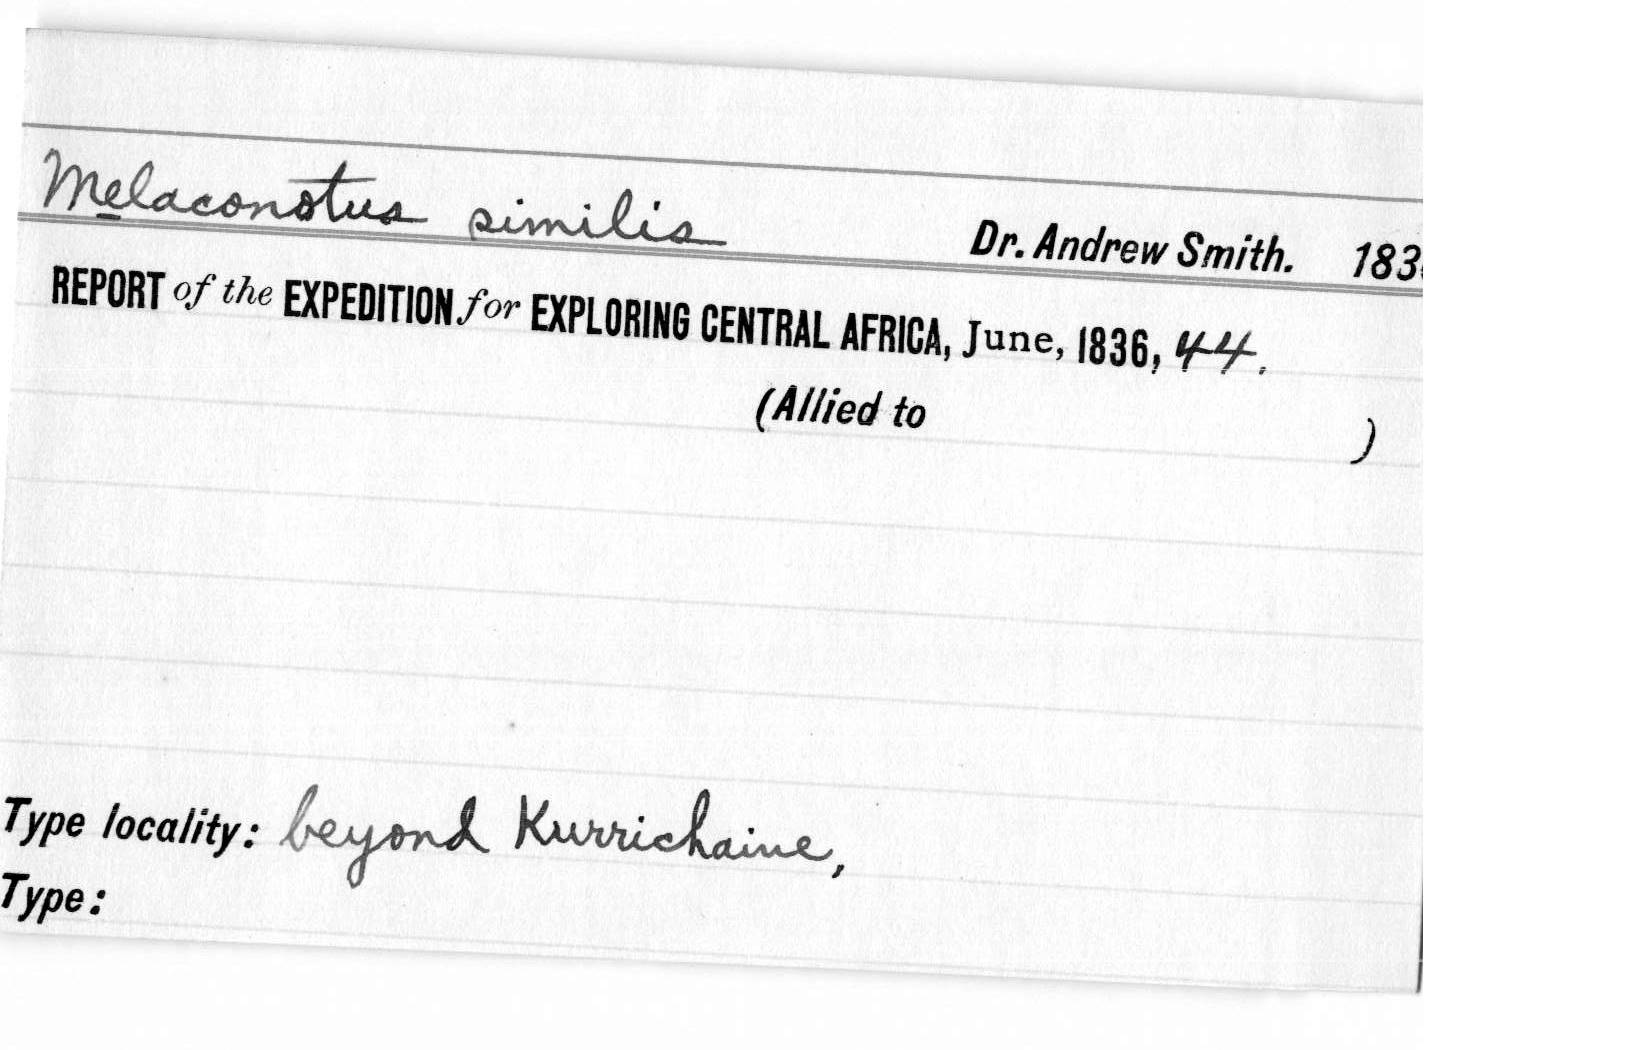 Melaconotus similis Dr. Andrew Smith. 183
REPORT of the EXPEDITION for EXPLORING CENTRAL AFRICA, June, 1836, 44.
(Allied to )
Type locality: beyond Kurrichaine,
Type: